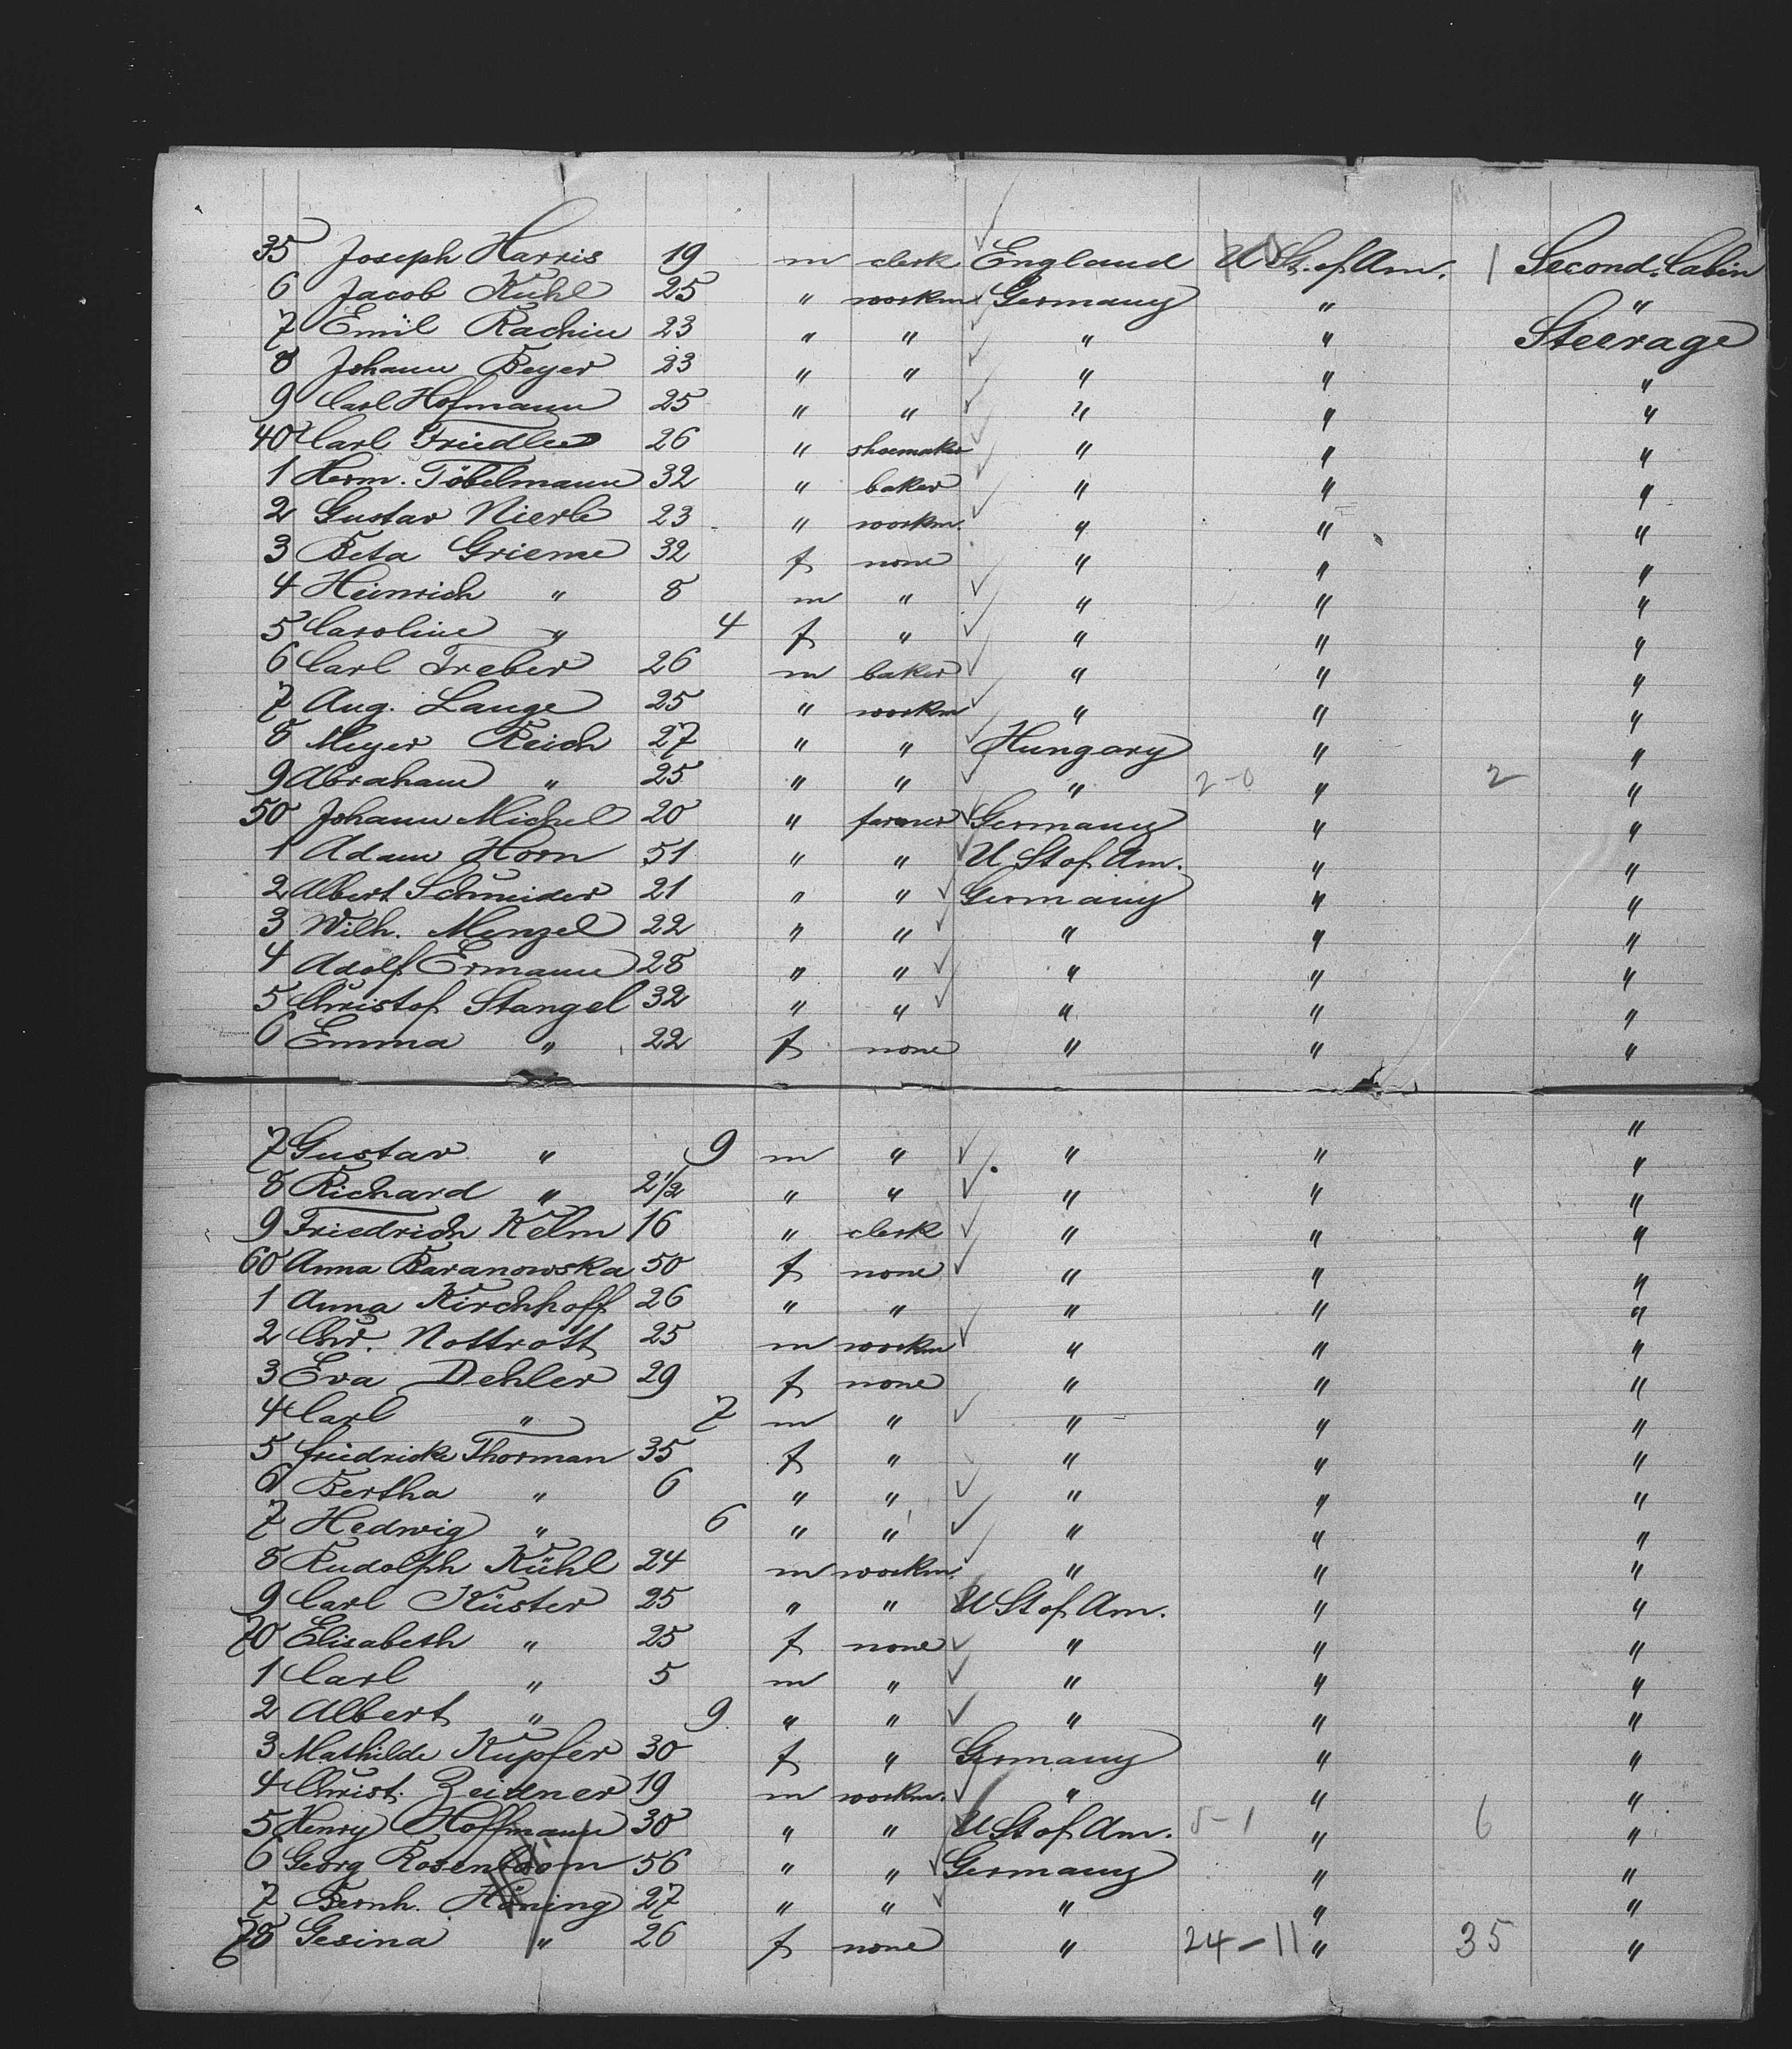 35 Joseph Harris 19 m clerk England U St. of Am. 1 Second. Cabin
6 Jacob Kuhl 25 " workm Germany " "
7 Emil Rachin 23 " " " " Steerage
8 Johann Beyer 23 " " " " "
9 Carl Hofmann 25 " " " " "
40 Carl Friedler 26 " shoemaker " " "
1 Herm. Töbelmann 32 " baker " " "
2 Gustav Nierle 23 " workm. " " "
3 Beta Grieme 32 f none " " "
4 Heinrich " 8 m " " " "
5 Caroline " 4 f " " " "
6 Carl Treber 26 m baker " " "
7 Aug. Lange 25 " workm " " "
8 Meyer Reich 27 " " Hungary " "
9 Abraham " 25 " " " 2-0 " 2 "
50 Johann Michel 20 " farmer Germany " "
1 Adam Horn 51 " " U St of Am. " "
2 Albert Schneider 21 " " Germany " "
3 Wilh. Menzel 22 " " " " "
4 Adolf Ermann 28 " " " " "
5 Christof Stangel 32 " " " " "
6 Emma " 22 f none " " "
7 Gustav " 9 m " " " "
8 Richard " 2 1/2 " " " " "
9 Friedrich Kelm 16 " clerk " " "
60 Anna Baranowska 50 f none " " "
1 Anna Kirchhoff 26 " " " " "
2 Chr. Nottrott 25 m workm " " "
3 Eva Dehler 29 f none " " "
4 Carl " 7 m " " " "
5 Friedricke Thorman 35 f " " " "
6 Bertha " 6 " " " " "
7 Hedwig " 6 " " " " "
8 Rudolph Kühl 24 m workm. " " "
9 Carl Küster 25 " " U St of Am. " "
70 Elisabeth " 25 f none " " "
1 Carl " 5 m " " " "
2 Albert " 9 " " " " "
3 Mathilde Kupfer 30 f " Germany " "
4 Christ. Zeidner 19 m workm. " " "
5 Henry Hoffmann 30 " " U St of Am. 5-1 " 6 "
6 Georg Rosenboom 56 " " Germany " "
7 Bernh. Höning 27 " " " " "
78 Gesina " 26 f none " 24-11 " 35 "